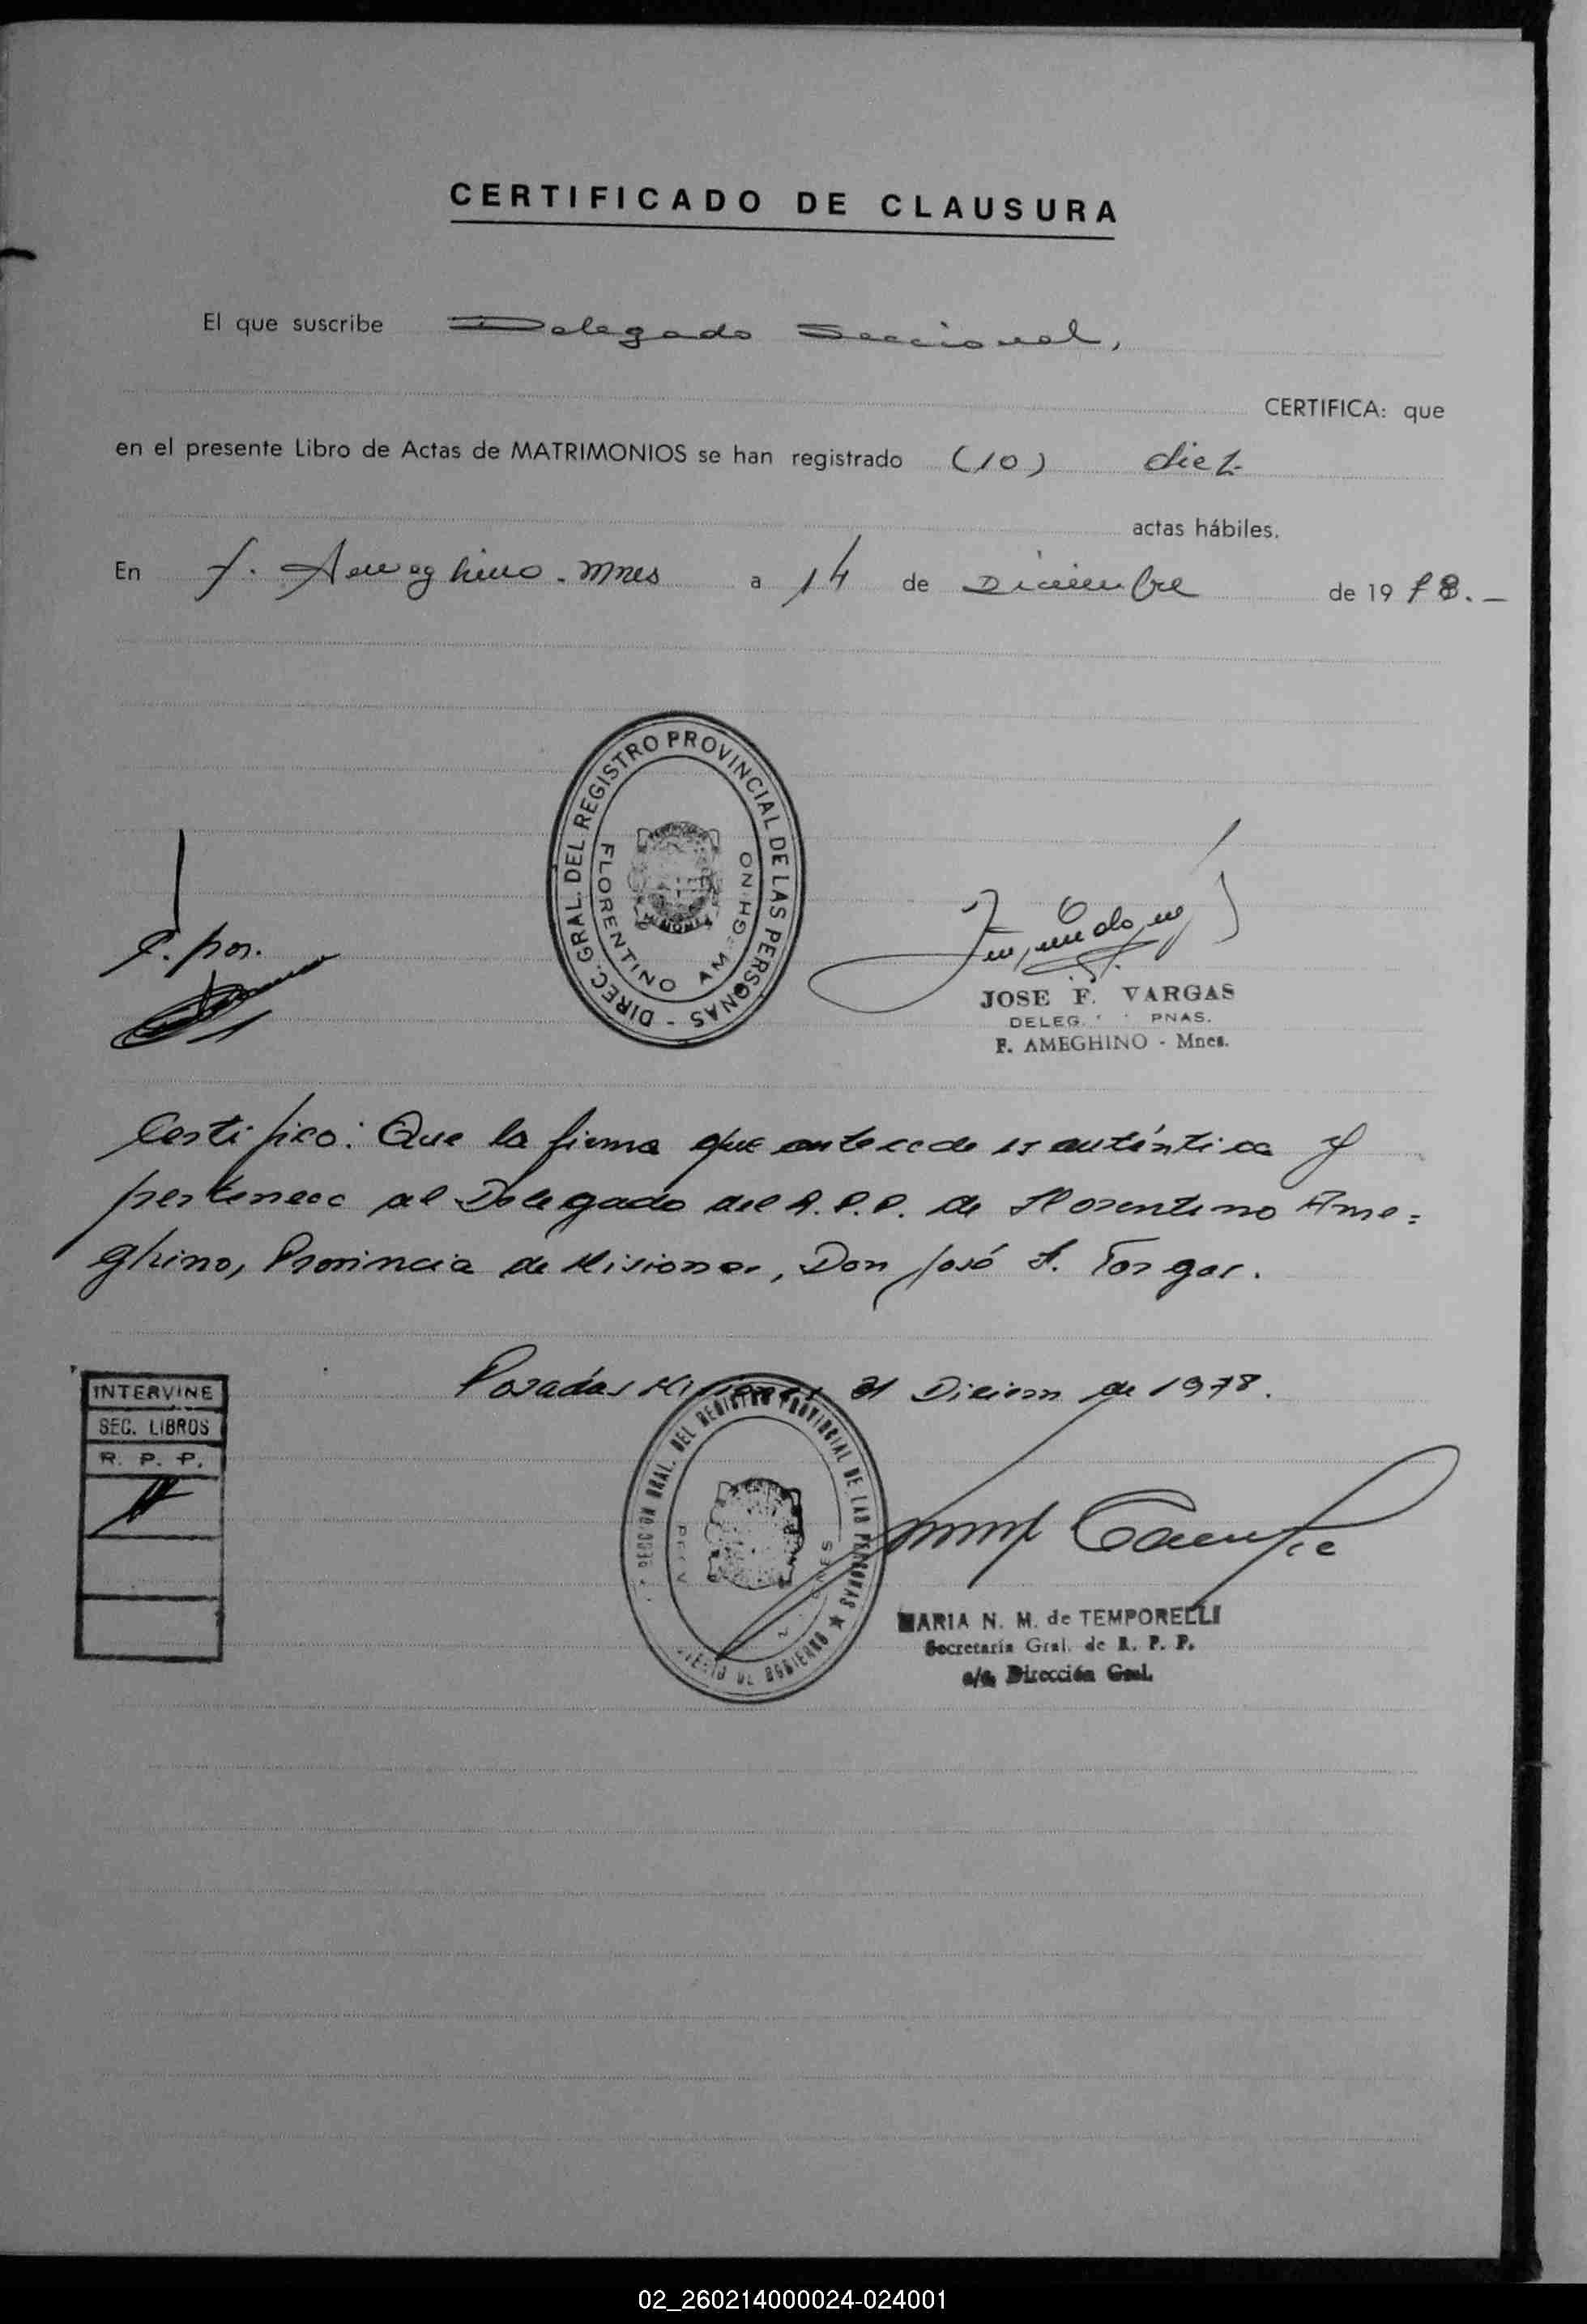 CERTIFICADO DE CLAUSURA
El que suscribe Delegado Seccional,
CERTIFICA: que
en el presente Libro de Actas de MATRIMONIOS se han registrado (10) diez
actas hábiles.
En F. Ameghino - Mnes a 14 de Diciembre de 1978.-
DIREC. GRAL. DEL REGISTRO PROVINCIAL DE LAS PERSONAS -
FLORENTINO AMEGHINO
JOSE F. VARGAS
DELEG. PNAS.
F. AMEGHINO - Mnes.
Certifico: Que la firma que antecede es auténtica y
pertenece al Delegado del R.P.P. de Florentino Ame=
ghino, Provincia de Misiones, Don José F. Vargas.
Posadas Misiones, 21 Diciem de 1978.
INTERVINE
SEC. LIBROS
R. P. P.
DIRECCION GRAL. DEL REGISTRO PROVINCIAL DE LAS PERSONAS ★
MARIA N. M. de TEMPORELLI
Secretaria Gral. de R. P. P.
a/c Dirección Gral.
02_260214000024-024001